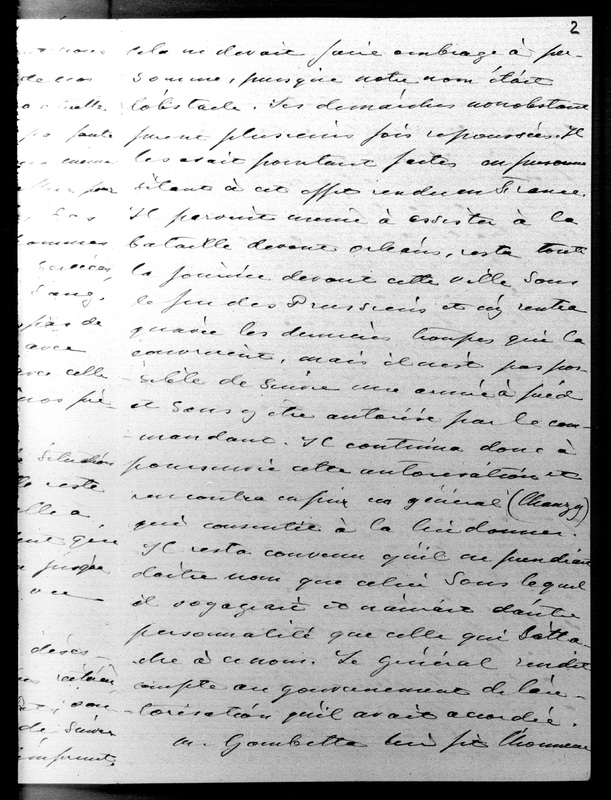 2
cela ne devait faire ombrage à per-
sonne, puisque notre nom était
l'obstacle. Ses démarches nonobstant
furent plusieurs fois repoussées. Il
les avait pourtant faites en personne
s'étant à cet effet rendu en France.
Il parvint même à assister à la
bataille devant Orléans, resta toute
la journée devant cette ville sous
le feu des Prussiens et n'y rentra
qu'avec les dernières troupes qui la
couvrirent, mais il n'est pas pos-
sible de suivre une armée à pied
et sans y être autorisé par le com-
mandant. Il continua donc à
poursuivre cette autorisation et
rencontra enfin un général (Chanzy)
qui consentit à la lui donner.
Il resta convenu qu'il ne prendrait
d'autre nom que celui sous lequel
il voyageait et n'aurait d'autre
personnalité que celle qui s'atta-
che à ce nom. Le général rendit
compte au gouvernement de l'au-
torisation qu'il avait accordée.
M. Gambetta lui fit l'honneur